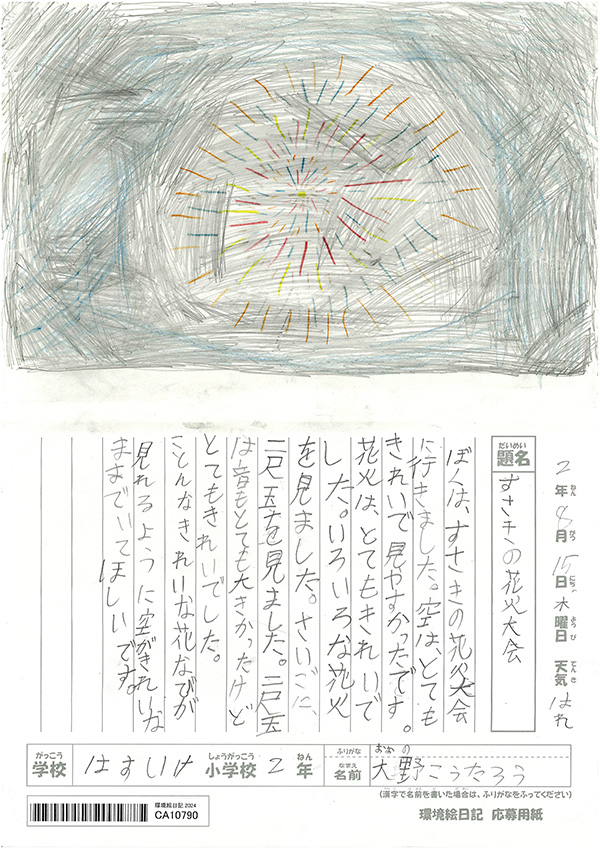 2年8月15日木曜日 天気 はれ
ねん がつ にち ようび てんき
だいめい
題名 すさきの花火大会
ぼくは、すさきの花火大会
に行きました。空は、とても
きれいで見やすかったです。
花火は、とてもきれいで
した。いろいろな花火
を見ました。さいごに、
二尺玉を見ました。二尺玉
は音もとても大きかったけど
とてもきれいでした。
こんなきれいな花火が
見れるように空がきれいな
ままでいてほしいです。
がっこう しょうがっこう ねん
学校 はすいけ 小学校 2年
ふりがな おおの
なまえ
名前 大野こうたろう
(漢字で名前を書いた場合は、ふりがなをふってください)
環境絵日記 2024
CA10790
環境絵日記 応募用紙